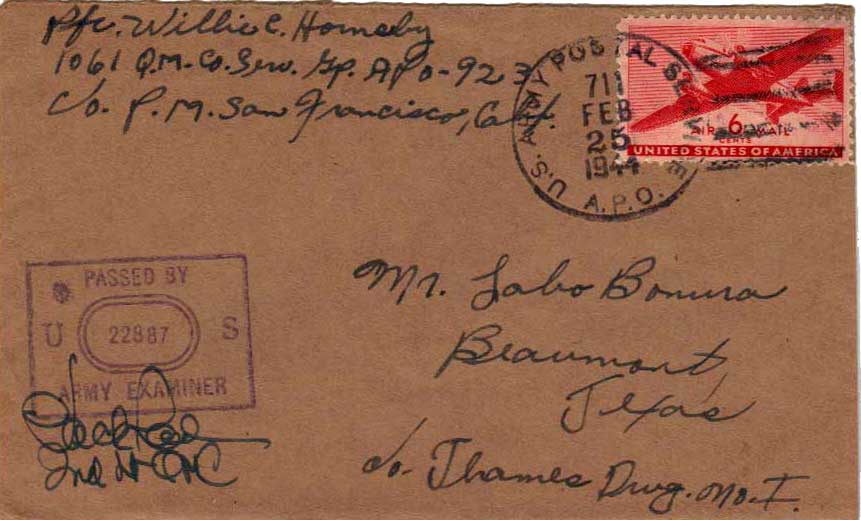 Pfc. Willie C. Hornsby
1061 Q.M. Co. Serv. Gp. APO-923
c/o. P.M. San Francisco, Calif.
U.S. ARMY POSTAL SERVICE
711
FEB
25
1944
A.P.O.
AIR 6 MAIL
CENTS
UNITED STATES OF AMERICA
PASSED BY
U 22887 S
ARMY EXAMINER
2nd Lt QMC
Mr. Labo Bonura
Beaumont,
Texas
c/o. Thames Drug. No. I.